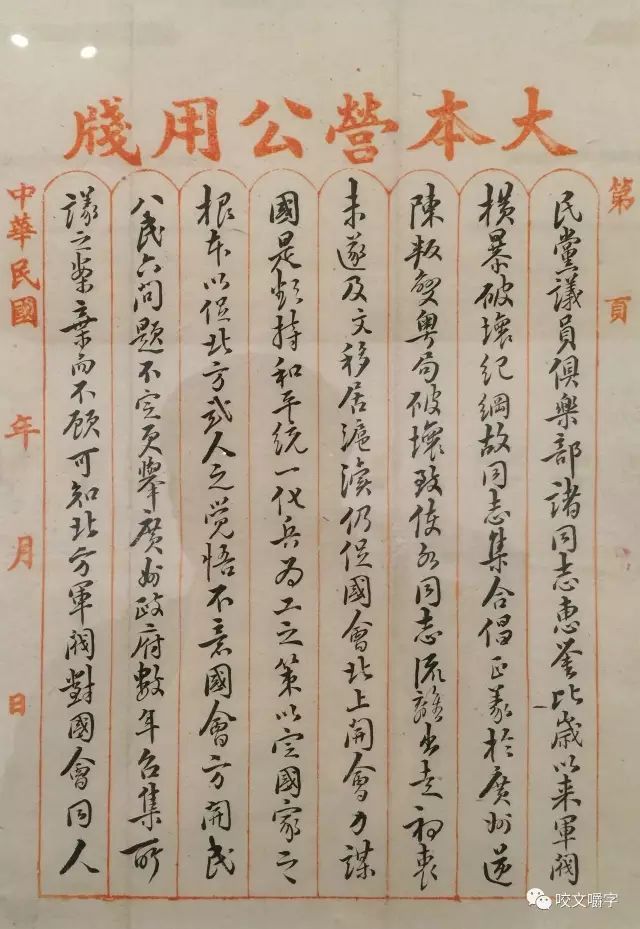 大本營公用牋
第 頁
民黨議員俱樂部諸同志惠鉴比歲以来軍閥
横暴破壞紀綱故同志集合倡正義於廣州逆
陳叛變粤局破壞致使各同志流離出走初衷
未遂及文移居滬瀆仍促國會北上開會力謀
國是 持和平統一化兵為工之策以定國家之
根本以促北方武人之覺悟不意國會方開民
八民六問題不定更舉廣州政府數年召集所
議之案棄而不顧可知北方軍閥對國會同人
中華民國 年 月 日
咬文嚼字